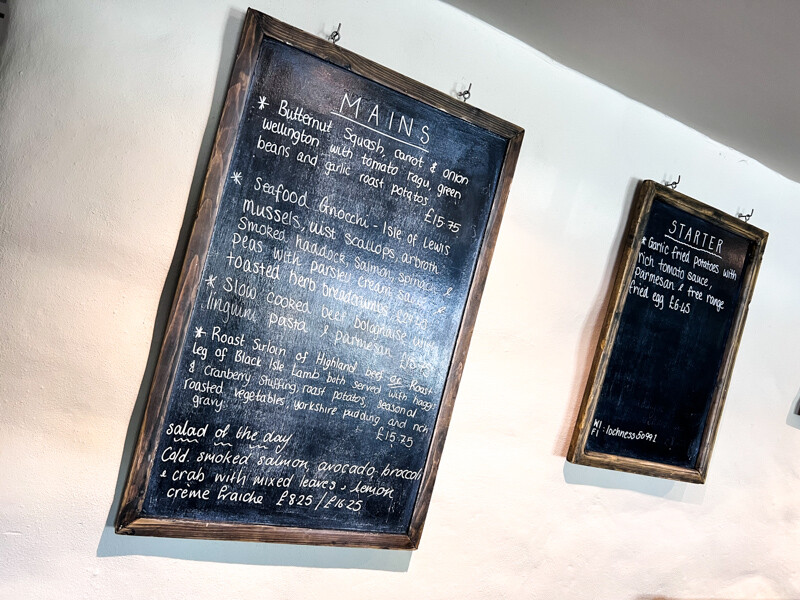 MAINS
* Butternut Squash, carrot & onion
wellington with tomato ragu, green
beans and garlic roast potatos
£15.75
* Seafood Gnocchi - Isle of Lewis
mussels, uist scallops, arbroth
smoked haddock, salmon, spinach &
peas with parsley cream sauce &
toasted herb breadcrumbs
* Slow cooked beef bolognaise with
linguini pasta & parmesan
* Roast Sirloin of Highland beef or Roast
leg of Black Isle Lamb both served with haggis
& cranberry stuffing, roast potatos, seasonal
roasted vegetables, yorkshire pudding and rich
gravy.
£15.75
salad of the day
Cold smoked salmon, avocado, broccoli
& crab with mixed leaves, lemon,
crème fraiche £8.25 / £16.25
STARTER
* Garlic fried potatoes with
rich tomato sauce,
parmesan & free range
fried egg £6.45
WI
FI : lochness50991